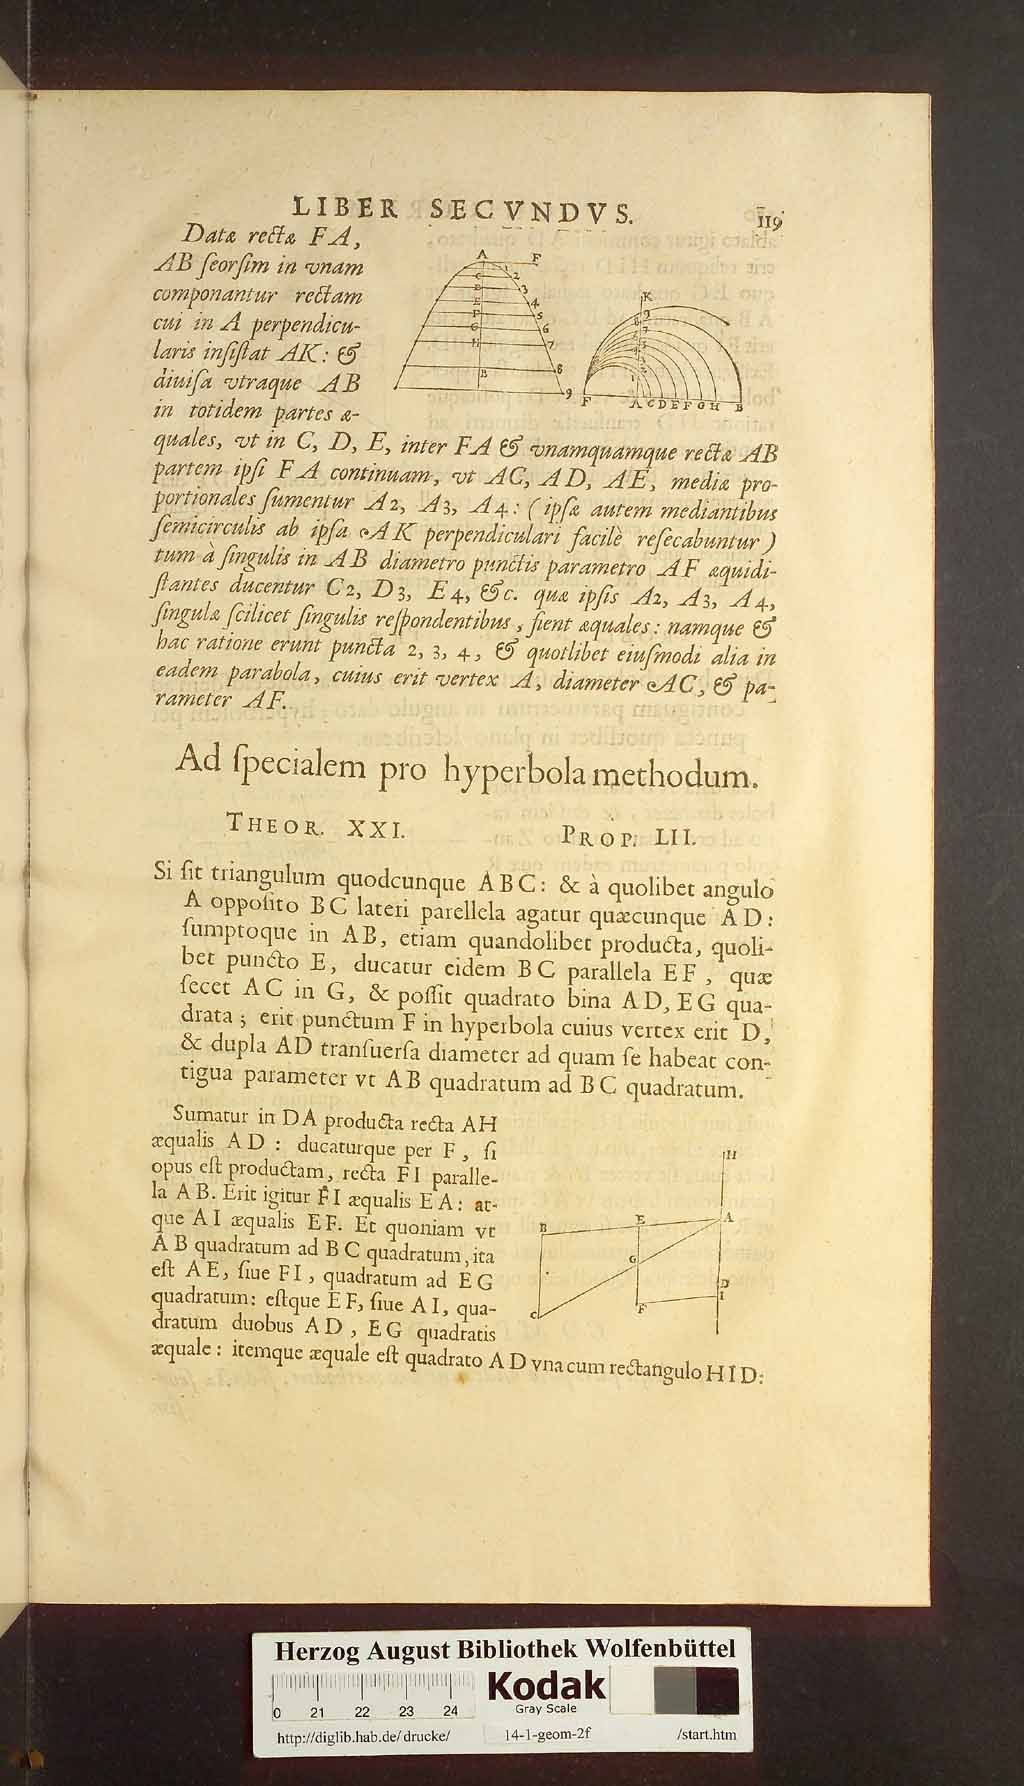 LIBER SECVNDVS. 119
Datæ rectæ FA,
AB ſeorſim in vnam
componantur rectam
cui in A perpendicu-
laris inſiſtat AK: &
diuiſa vtraque AB
in totidem partes æ-
quales, vt in C, D, E, inter FA & vnamquamque rectæ AB
partem ipſi FA continuam, vt AC, AD, AE, mediæ pro-
portionales ſumentur A2, A3, A4: (ipſæ autem mediantibus
ſemicirculis ab ipſa AK perpendiculari facilè reſecabuntur)
tum à ſingulis in AB diametro punctis parametro AF æquidi-
ſtantes ducentur C2, D3, E4, &c. quæ ipſis A2, A3, A4,
ſingulæ ſcilicet ſingulis reſpondentibus, fient æquales: namque &
hac ratione erunt puncta 2, 3, 4, & quotlibet eiuſmodi alia in
eadem parabola, cuius erit vertex A, diameter AC, & pa-
rameter AF.
A F
C 2
D 3
E 4
F 5
G 6
H 7
B 8
9
K
F A C D E F G H B
Ad ſpecialem pro hyperbola methodum.
THEOR. XXI. PROP. LII.
Si ſit triangulum quodcunque ABC: & à quolibet angulo
A oppoſito BC lateri parellela agatur quæcunque AD:
ſumptoque in AB, etiam quandolibet producta, quoli-
bet puncto E, ducatur eidem BC parallela EF, quæ
ſecet AC in G, & poſſit quadrato bina AD, EG qua-
drata; erit punctum F in hyperbola cuius vertex erit D,
& dupla AD tranſuerſa diameter ad quam ſe habeat con-
tigua parameter vt AB quadratum ad BC quadratum.
Sumatur in DA producta recta AH
æqualis AD: ducaturque per F, ſi
opus eſt productam, recta FI paralle-
la AB. Erit igitur FI æqualis EA: at-
que AI æqualis EF. Et quoniam vt
AB quadratum ad BC quadratum, ita
eſt AE, ſiue FI, quadratum ad EG
quadratum: eſtque EF, ſiue AI, qua-
dratum duobus AD, EG quadratis
æquale: itemque æquale eſt quadrato AD vna cum rectangulo HID:
H
B E A
G
D
I
C F
Herzog August Bibliothek Wolfenbüttel
Kodak
Gray Scale
0 21 22 23 24
http://diglib.hab.de/drucke/ 14-1-geom-2f /start.htm